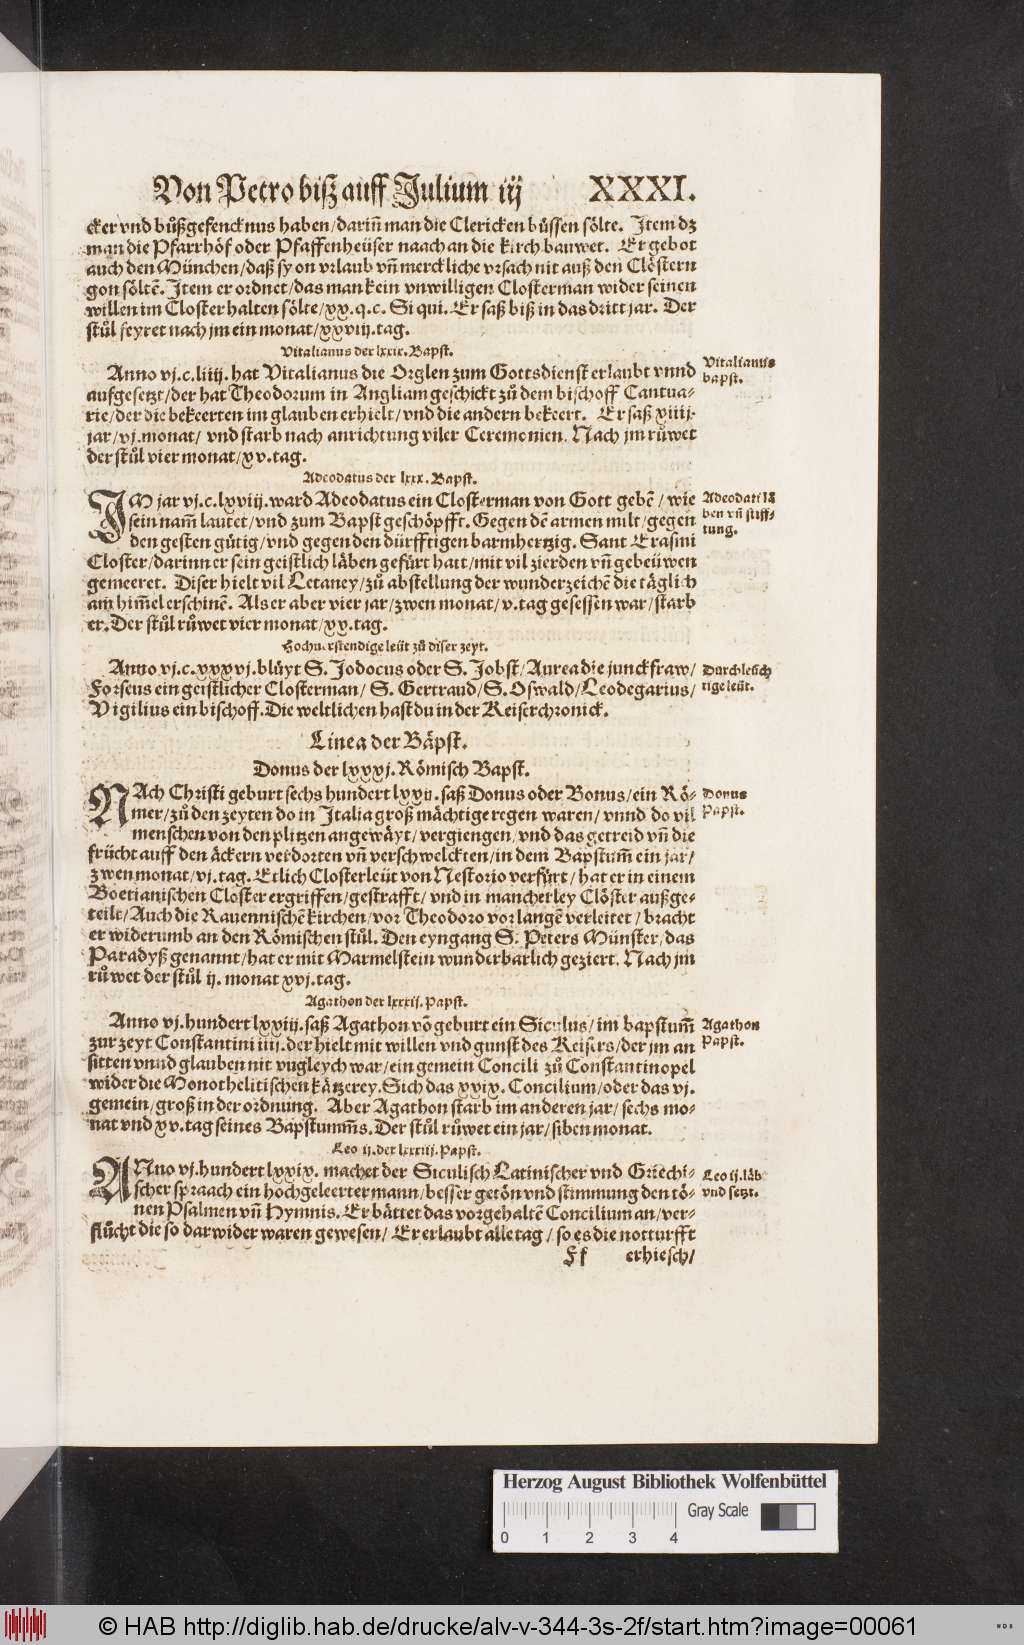 Von Petro biß auff Julium iij XXXI.
cker vnd bůßgefencknus haben/darin̄ man die Clericken büssen sölte. Item dz
man die Pfarrhöf oder Pfaffenheüser naach an die kirch bauwet. Er gebot
auch den München/daß sy on vrlaub vn̄ merckliche vrsach nit auß den Clöstern
gon söltē. Item er ordnet/das man kein vnwilligen Closterman wider seinen
willen im Closter halten sölte/xx.q.c. Si qui. Er saß biß in das dritt jar. Der
stůl feyret nach jm ein monat/xxviij.tag.
Vitalianus der lxxix.Bapst.
Anno vj.c.liiij. hat Vitalianus die Orglen zum Gottsdienst erlaubt vnnd
aufgesetzt/der hat Theodorum in Angliam geschickt zů dem bischoff Cantua-
rie/der die bekeerten im glauben erhielt/vnd die andern bekeert. Er saß xiiij.
jar/vj.monat/ vnd starb nach anrichtung viler Ceremonien. Nach jm růwet
der stůl vier monat/xv.tag.
Vitalianus
bapst.
Adeodatus der lxxx.Bapst.
IM jar vj.c.lxviij.ward Adeodatus ein Closterman von Gott gebē/wie
sein nam̄ lautet/vnd zum Bapst geschöpfft. Gegen dē armen milt/gegen
den gesten gütig/vnd gegen den dürfftigen barmhertzig. Sant Erasmi
Closter/darinn er sein geistlich läben gefürt hatt/mit vil zierden vn̄ gebeüwen
gemeeret. Diser hielt vil Letaney/zů abstellung der wunderzeichē die täglich
am him̄el erschinē. Als er aber vier jar/zwen monat/v.tag gesessen war/starb
er. Der stůl růwet vier monat/xx.tag.
Adeodati lä
ben vn̄ stiff-
tung.
Hochuerstendige leüt zů diser zeyt.
Anno vj.c.xxxvj.blüyt S. Jodocus oder S. Jobst/Aurea die junckfraw/
Forseus ein geistlicher Closterman/ S. Gertraud/S. Oswald/Leodegarius/
Vigilius ein bischoff. Die weltlichen hast du in der Keiserchronick.
Durchleüch
tige leüt.
Linea der Bäpst.
Donus der lxxxj. Römisch Bapst.
NAch Christi geburt sechs hundert lxxij. saß Donus oder Bonus/ein Rö-
mer/zů den zeyten do in Italia groß mächtige regen waren/ vnnd do vil
menschen von den plitzen angewäyt/vergiengen/vnd das getreid vn̄ die
frücht auff den äckern verdorten vn̄ verschwelckten/in dem Bapstum̄ ein jar/
zwen monat/vj.tag. Etlich Closterleüt von Nestorio verfürt/hat er in einem
Boetianischen Closter ergriffen/gestrafft/ vnd in mancherley Clöster außge-
teilt/Auch die Rauennischē kirchen/vor Theodoro vor langē verleitet/ bracht
er widerumb an den Römischen stůl. Den eyngang S. Peters Münster/das
Paradyß genannt/hat er mit Marmelstein wunderbarlich geziert. Nach jm
růwet der stůl ij. monat xvj.tag.
Donus
Papst.
Agathon der lxxxij. Papst.
Anno vj.hundert lxxiij.saß Agathon vō geburt ein Siculus/im bapstum̄
zur zeyt Constantini iiij.der hielt mit willen vnd gunst des Keisers/der jm an
sitten vnnd glauben nit vngleych war/ein gemein Concili zů Constantinopel
wider die Monothelitischen kätzerey. Sich das xxix. Concilium/oder das vj.
gemein/groß in der ordnung. Aber Agathon starb im anderen jar/ sechs mo-
nat vnd xv.tag seines Bapstumm̄s. Der stůl růwet ein jar/siben monat.
Agathon
Papst.
Leo ij.der lxxxiij.Papst.
ANno vj.hundert lxxix. machet der Siculisch Latinischer vnd Griechi-
scher spraach ein hochgeleerter mann/besser getön vnd stimmung den tö-
nen Psalmen vn̄ Hymnis. Er bättet das vorgehaltē Concilium an/ver-
flůcht die so darwider waren gewesen/ Er erlaubt alle tag/so es die notturfft
Leo ij. läb
vnd setzt.
Ff erhiesch/
Herzog August Bibliothek Wolfenbüttel
Gray Scale
0 1 2 3 4
© HAB http://diglib.hab.de/drucke/alv-v-344-3s-2f/start.htm?image=00061